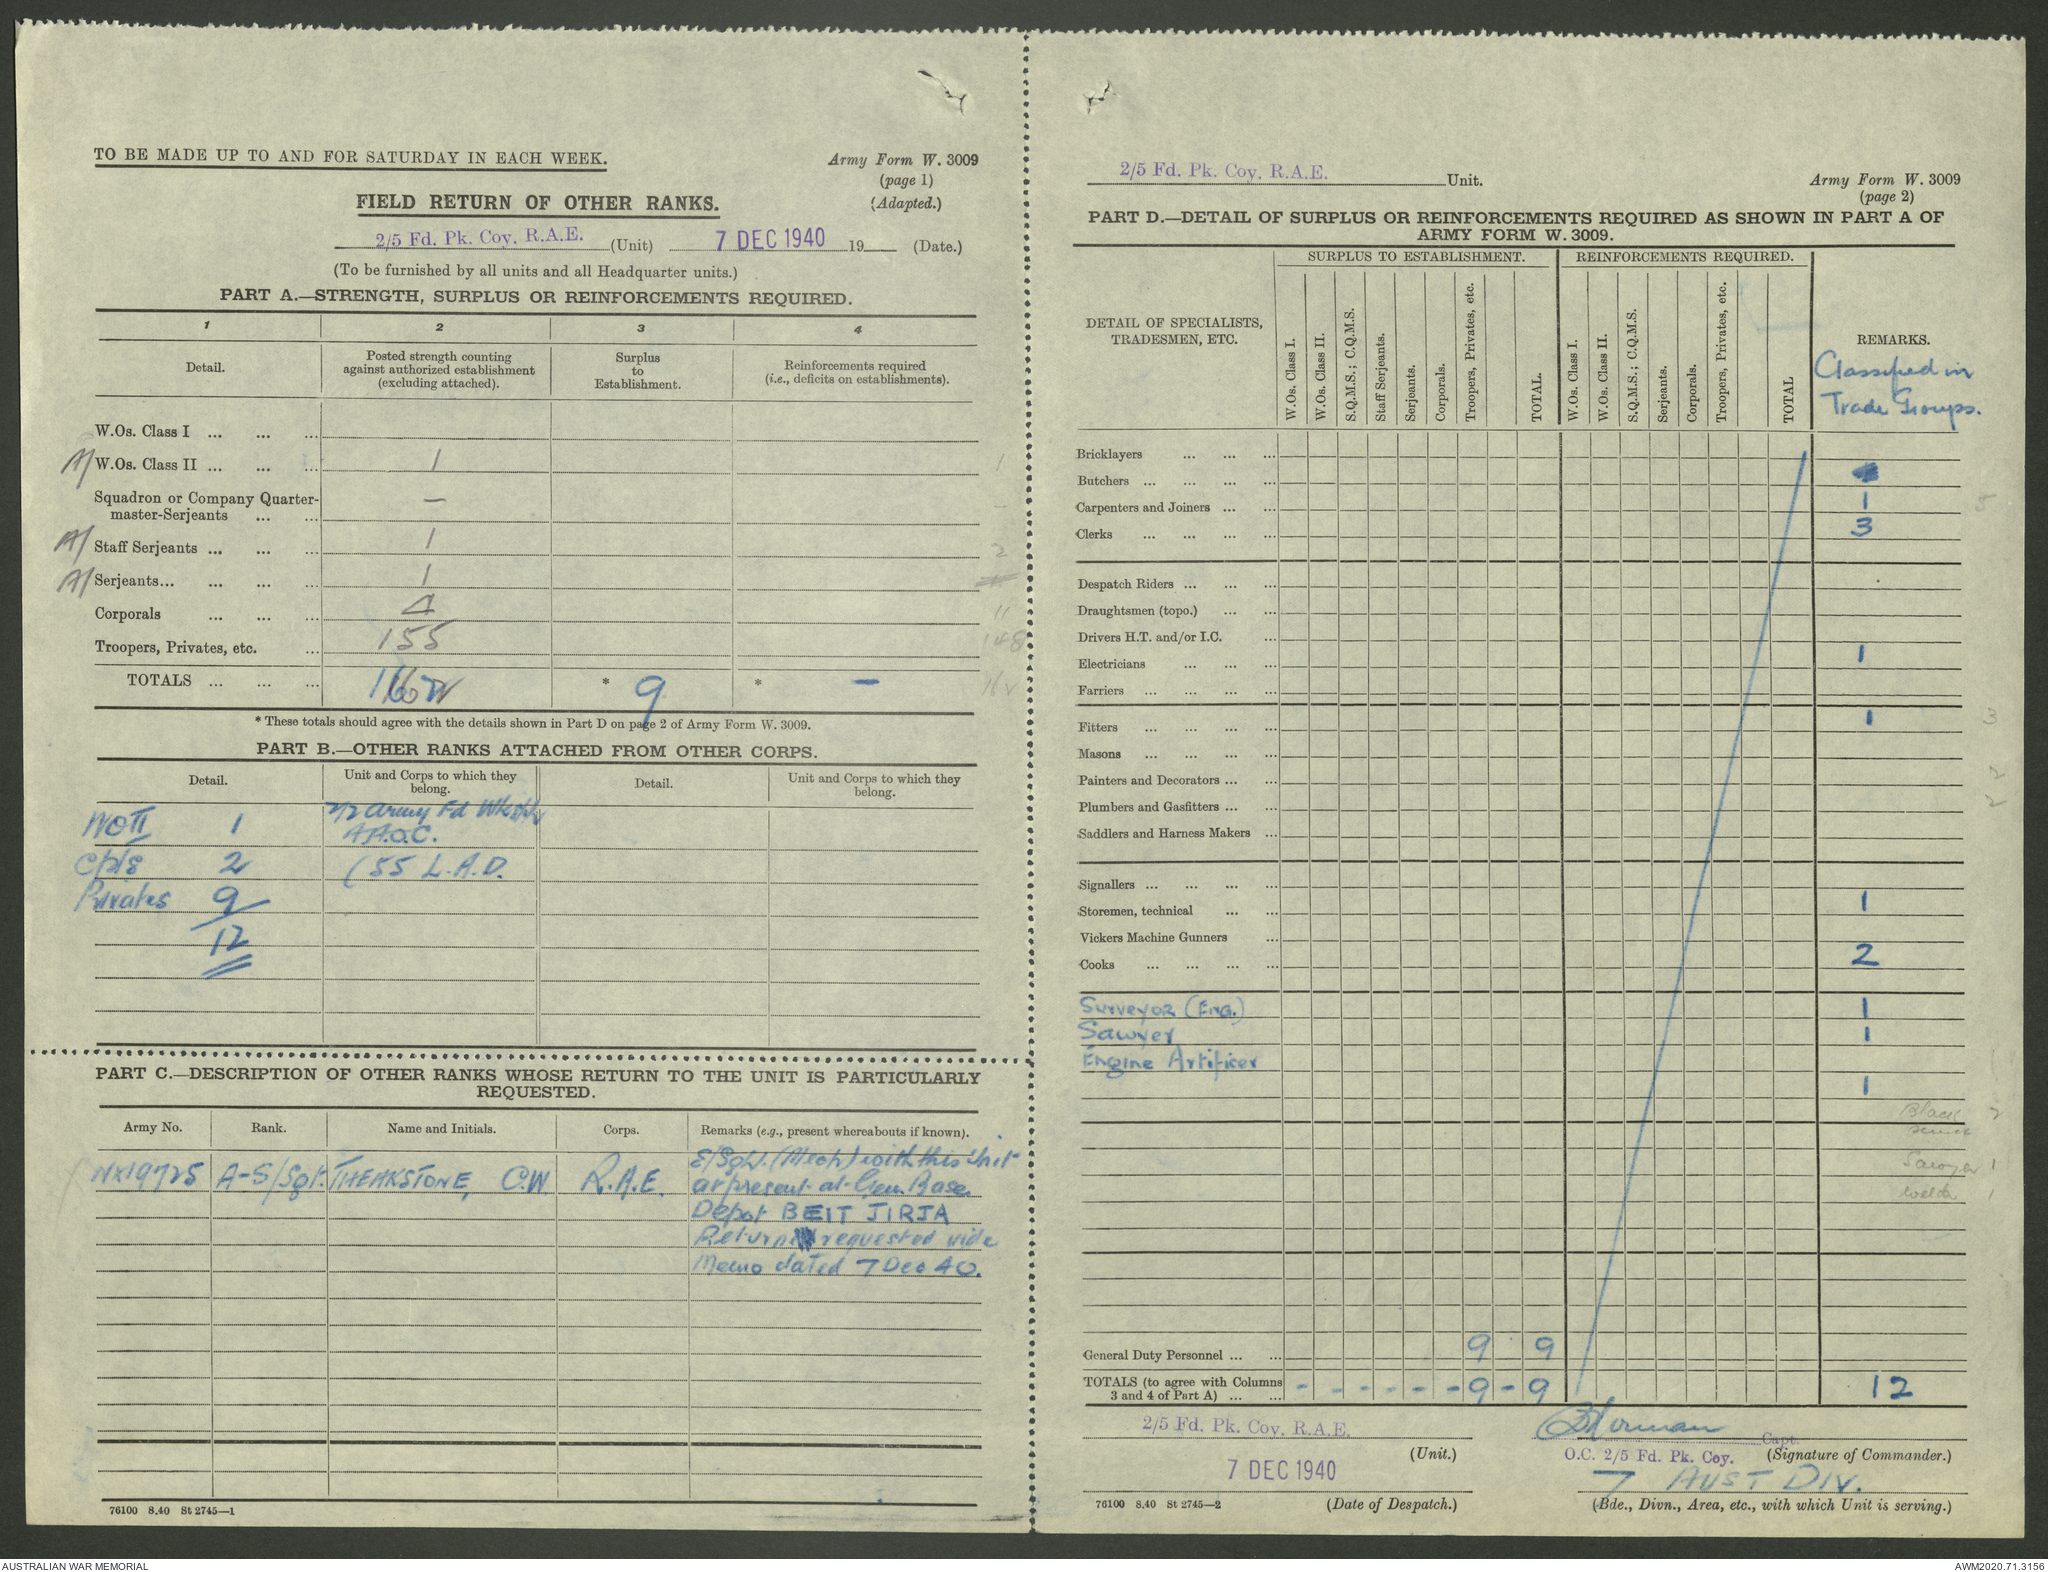 TO BE MADE UP TO AND FOR SATURDAY IN EACH WEEK.
Army Form W. 3009
(page 1)
(Adapted.)
FIELD RETURN OF OTHER RANKS.
2/5 Fd. Pk. Coy. R.A.E. (Unit) 7 DEC 1940 19 (Date.)
(To be furnished by all units and all Headquarter units.)
PART A.—STRENGTH, SURPLUS OR REINFORCEMENTS REQUIRED.
1 2 3 4
Detail. Posted strength counting against authorized establishment (excluding attached). Surplus to Establishment. Reinforcements required (i.e., deficits on establishments).
W.Os. Class I ... ... ...
A/ W.Os. Class II ... ... ... 1 1
Squadron or Company Quarter-
master-Serjeants ... ... —
A/ Staff Serjeants ... ... ... 1 2
A/ Serjeants... ... ... ... 1
Corporals ... ... ... 4 11
Troopers, Privates, etc. ... 155 148
TOTALS ... ... ... 162 * 9 * — 162
* These totals should agree with the details shown in Part D on page 2 of Army Form W. 3009.
PART B.—OTHER RANKS ATTACHED FROM OTHER CORPS.
Detail. Unit and Corps to which they belong. Detail. Unit and Corps to which they belong.
WO II 1 2/2 Army Fd Wkshp
A.A.O.C.
Cpls 2 (55 L.A.D.
Privates 9
12
PART C.—DESCRIPTION OF OTHER RANKS WHOSE RETURN TO THE UNIT IS PARTICULARLY
REQUESTED.
Army No. Rank. Name and Initials. Corps. Remarks (e.g., present whereabouts if known).
NX19725 A-S/Sgt. THEAKSTONE, C.W R.A.E. E/Sgt. (Mech) with this Unit
at present at Gen. Base
Depot BEIT JIRJA
Return requested vide
Memo dated 7 Dec 40.
76100 8.40 St 2745—1
2/5 Fd. Pk. Coy. R.A.E. Unit.
Army Form W. 3009
(page 2)
PART D.—DETAIL OF SURPLUS OR REINFORCEMENTS REQUIRED AS SHOWN IN PART A OF
ARMY FORM W. 3009.
DETAIL OF SPECIALISTS, TRADESMEN, ETC.
SURPLUS TO ESTABLISHMENT. REINFORCEMENTS REQUIRED.
W.Os. Class I. W.Os. Class II. S.Q.M.S.; C.Q.M.S. Staff Serjeants. Serjeants. Corporals. Troopers, Privates, etc. TOTAL.
W.Os. Class I. W.Os. Class II. S.Q.M.S.; C.Q.M.S. Serjeants. Corporals. Troopers, Privates, etc. TOTAL
REMARKS.
Classified in
Trade Groups.
Bricklayers ... ... ...
Butchers ... ... ... ...
Carpenters and Joiners ... ... 1 5
Clerks ... ... ... ... 3
Despatch Riders ... ... ...
Draughtsmen (topo.) ... ...
Drivers H.T. and/or I.C. ...
Electricians ... ... ... 1
Farriers ... ... ... ...
Fitters ... ... ... ... 1 3
Masons ... ... ... ...
Painters and Decorators ... ... 2
Plumbers and Gasfitters ... ... 2
Saddlers and Harness Makers ...
Signallers ... ... ... ...
Storemen, technical ... ... 1
Vickers Machine Gunners ...
Cooks ... ... ... ... 2
Surveyor (Eng.) 1
Sawyer 1
Engine Artificer
1
Black 2
Sawyer 1
Welder 1
General Duty Personnel ... ... 9 9
TOTALS (to agree with Columns
3 and 4 of Part A) ... ... - - - - - - 9 - 9 12
2/5 Fd. Pk. Coy. R.A.E. (Unit.)
7 DEC 1940
(Date of Despatch.)
Capt.
O.C. 2/5 Fd. Pk. Coy. (Signature of Commander.)
7 AUST DIV.
(Bde., Divn., Area, etc., with which Unit is serving.)
76100 8.40 St 2745—2
AUSTRALIAN WAR MEMORIAL
AWM2020.71.3156